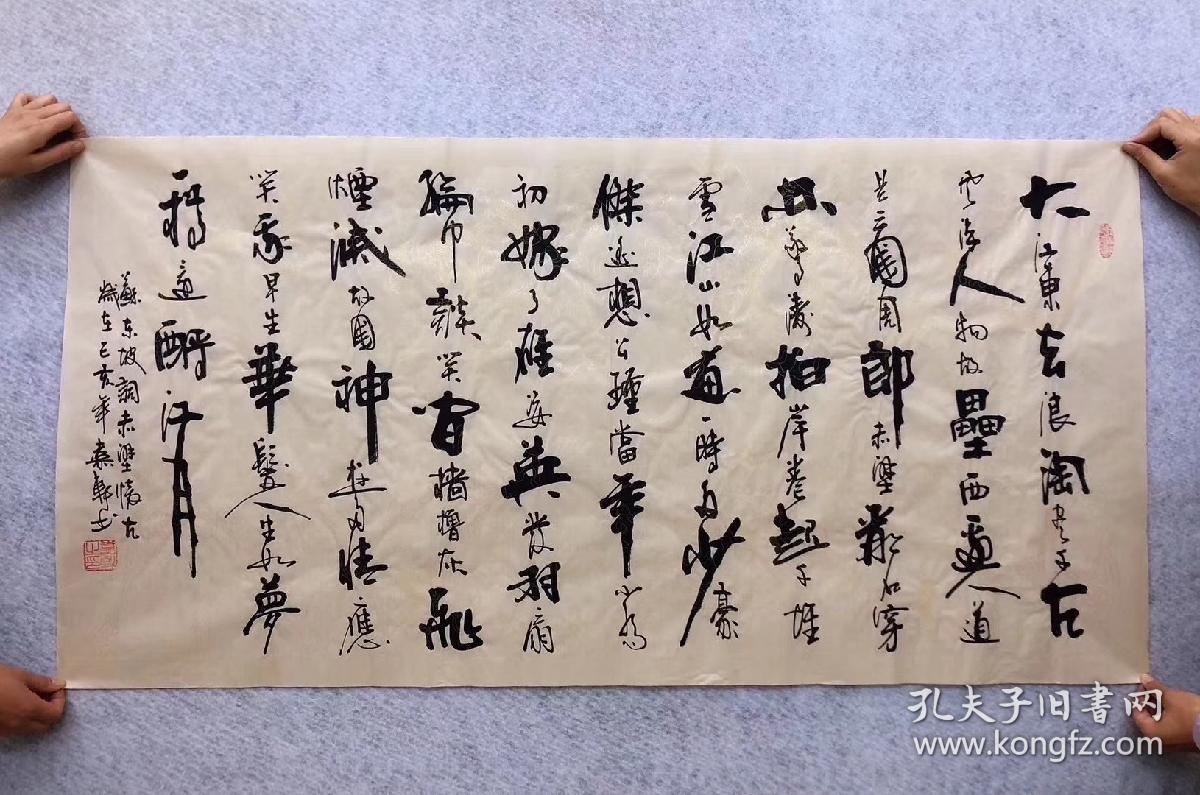 大江東去浪淘尽千古
風流人物故壘西邊人道
是三國周郎赤壁亂石穿
空驚濤拍岸卷起千堆
雪江山如畫一時多少豪
傑遙想公瑾當年小喬
初嫁了雄姿英發羽扇
綸巾談笑間檣櫓灰飛
煙滅故國神遊多情應
笑我早生華髮人生如夢
一樽還酹江月
蘇東坡詞赤壁懷古
歲在己亥年 書
孔夫子旧书网
www.kongfz.com